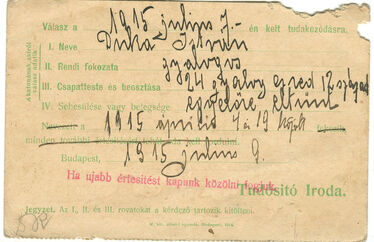 Válasz a 1915 julius 7.- én kelt tudakozódásra.
Alakulatának
I. Neve Duka István
II. Rendi fokozata gyalogos
III. Csapatteste és beosztása 24 gyalog ezred 12 század
IV. Sebesülése vagy betegsége egyelőre eltünt
1915 április 7 és 19 közt
minden további
Budapest, 1915 julius 9.
Ha ujabb értesitést kapunk közölni fogjuk.
Tudósitó Iroda.
Jegyzet. Az I., II. és III. rovatokat a kérdező tartozik kitölteni.
Budapest, 1914